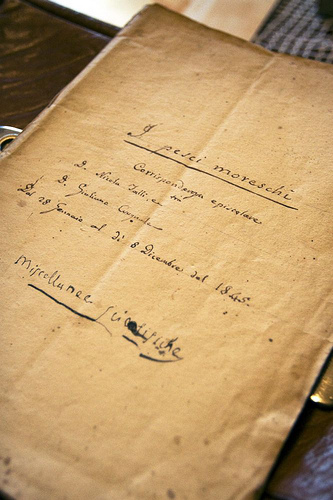 I pesci moreschi
Corrispondenza epistolare
D. Nicola Tulli, e
D. Giuliano
Dal 28 Gennaio al di 8 Dicembre del 1845.
Miscellanee Scientifiche